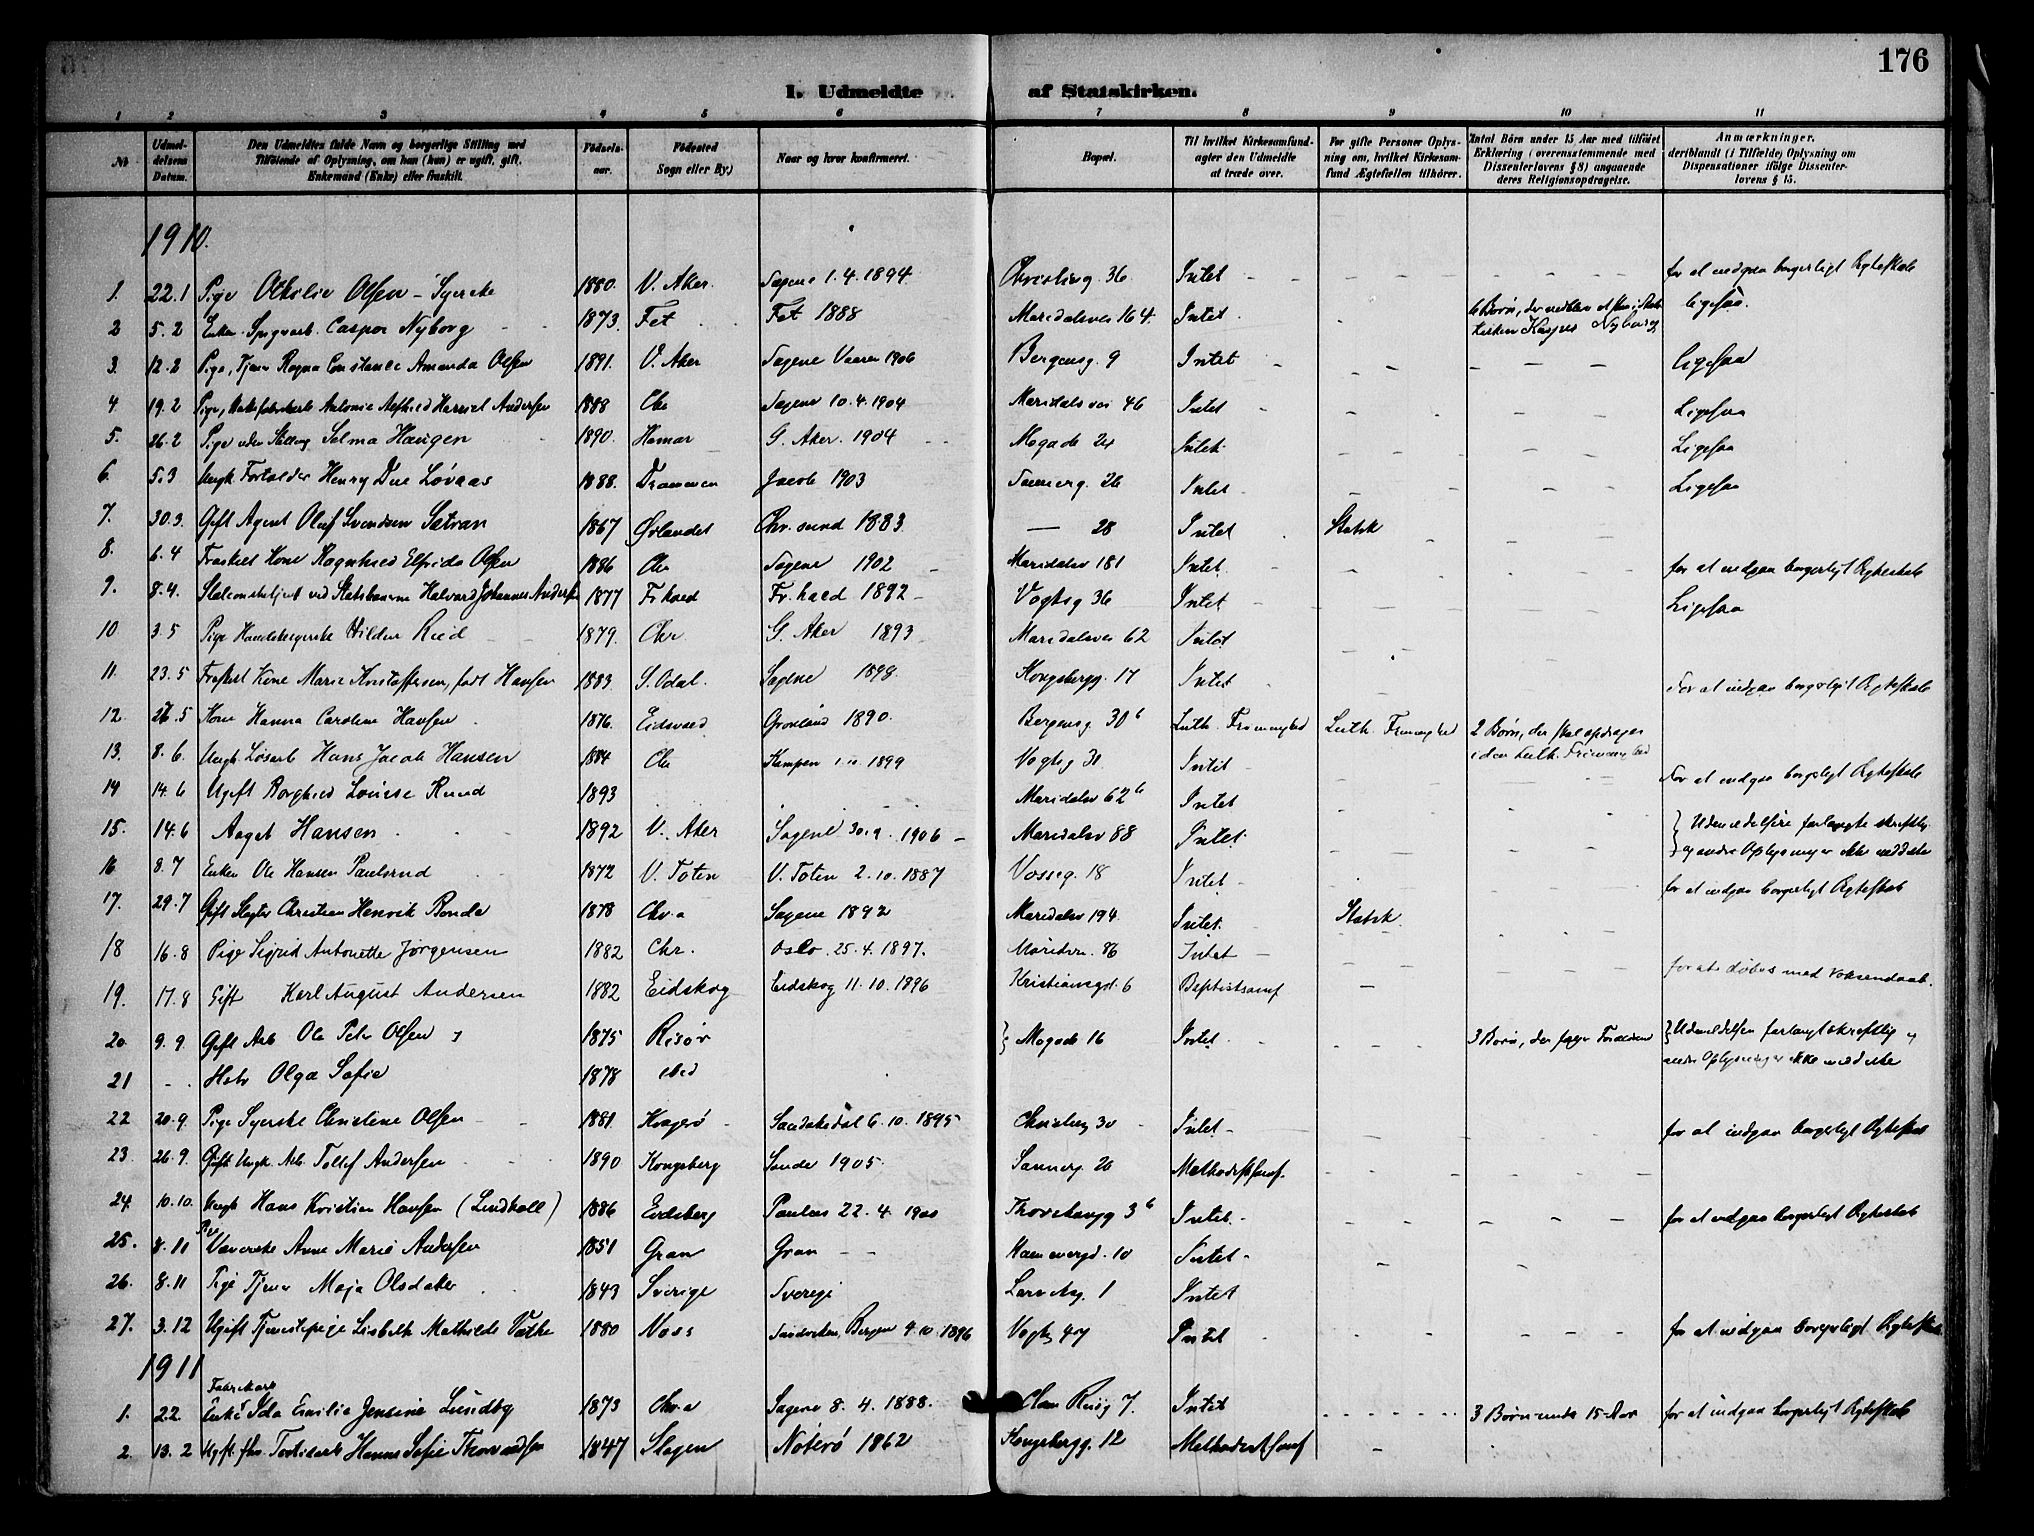 176
I. Udmeldte af Statskirken.
1 2 3 4 5 6 7 8 9 10 11
No. Udmeldelsens Datum. Den Udmeldtes fulde Navn og borgerlige Stilling med Tilföiende af Oplysning, om han (hun) er ugift, gift, Enkemand (Enke) eller fraskilt. Födselsaar. Födested Sogn eller By.) Naar og hvor konfirmeret. Bopæl. Til hvilket Kirkesamfund agter den Udmeldte at træde over. For gifte Personer Oplysning om, hvilket Kirkesamfund Ægtefællen tilhörer. Antal Börn under 15 Aar med tilföiet Erklæring (overensstemmende med Dissenterlovens § 8) angaaende deres Religionsopdragelse. Anmærkninger, deriblandt (i Tilfælde) Oplysning om Dispensationer ifölge Dissenterlovens § 15.
1910.
1. 22.1 Pige Othilie Olsen - Syerske 1880. V. Aker. Sagene 1.4.1894 Christiesg. 36 Intet for at indgaa borgerligt Ægteskab
2 5.2 Enkem. Caspar Nyborg 1873. Fet Fet 1888 Maridalsvei 164. Intet 6 Børn, der Kirken Kaspar Nyborg ligesaa.
3. 12.2 Pige, Tjener Ragna Constance Amanda Olsen 1891. V. Aker Sagene Vaaren 1906 Bergensg. 9 Intet ligesaa
4 19.2 Pige, Antonie Harriet Andersen 1888 Chr Sagene 10.4.1904 Maridalsvei 46 Intet Ligesaa
5. 26.2 Pige uden Stilling Selma Haugen 1890. Hamar G. Aker. 1904 Mogade 24 Intet Ligesaa
6. 5.3 Ungk. Henry Due Løvaas 1888. Drammen Jacob 1903 Sannerg. 26 Intet Ligesaa
7. 30.3. Gift Agent Oluf Svendsen Sætran 1867 Ørlandet Chr.sund 1883 — 28 Intet Statsk
8. 6.4 Fraskilt Kone Ragnhild Elfrida Olsen 1886 Chr Sagene 1902 Maridalsv 181 Intet for at indgaa borgerligt Ægteskab
9. 8.4. ved Statsbanerne Halvard Johannes Andersen 1877 Fr.hald Fr.hald 1892 Vogtsg 36 Intet Ligesaa
10 3.5 Pige Hilda Ried 1879. Chr G. Aker 1893 Maridalsvei 62 Intet
11. 23.5 Fraskilt Kone Marie Kristoffersen, født Hansen 1883 S. Odal. Sagene 1898. Kongsbergg. 17 Intet For at indgaa borgerligt Ægteskab
12. 26.5 Kone Hanna Caroline Hansen 1876. Eidsvold Grønland 1890. Bergensg 30b Luth. Frimenighed Luth. Frimenighed 2 Børn, der skal opdrages i den Luth. Frimenighed
13. 8.6. Ungk. Løsarb Hans Jacob Hansen 1884 Chr Kampen 1899 Vogtsg 31 Intet
14 14.6 Ugift Borghild Louise Ruud 1893 Maridalsv 62b Intet For at indgaa borgerligt Ægteskab
15. 14.6 Aagot Hansen 1892 V. Aker Sagene 30.9.1906 Maridalsv 88 Intet. Udmeldelsen forlangte skriftlig og andre Oplysninger ikke meddelte
16 8.7 Enkem Ole Hansen Paulsrud 1872 V. Toten V. Toten 2.10.1887 Vosseg. 18 Intet for at indgaa borgerligt Ægteskab
17. 29.7 Gift Slagter Christian Henrik Bonde 1878 Chr.a Sagene 1892 Maridalsv 194. Intet Statsk.
18 16.8 Pige Sigrid Antonette Jørgensen 1882 Chr. Oslo 25.4.1897. Maridsv. 86 Intet
19. 17.8 Gift Karl August Andersen 1882 Eidskog Eidskog 11.10.1896 Kristiansgd. 6 Baptistsamf for at døbes med Voksendaab.
20 9.9. Gift Arb Ole Peter Olsen 1875 Risör Mogade 16 Intet 3 Børn, der følger Forældrene Udmeldelsen forlangt skriftlig og andre Oplysninger ikke meddelte
21 - . Hstr Olga Sofie 1878 ibid
22 20.9. Pige Syerske Christine Olsen 1881. Kragerø Sandøkedal 6.10.1895 Christiesg 30 Intet for at indgaa borgerligt Ægteskab
23 26.9. Gift Ungk. Arb. Tollef Andersen 1890 Kongsberg Sande 1905. Sannerg. 20 Methodistsamf.
24. 10.10. Ungk Hans Kristian Hansen (Lindhall) 1886 Eidsberg Paulus 22.4.1900 Thorshaugg 3b Intet for at indgaa borgerligt Ægteskab
25. 8.11 Pige Væverske Anne Marie Andersen 1851 Gran Gran Hammergd. 10 Intet
26. 8.11 Pige Tjener Maja Olsdatter 1843 Sverige Sverige Larviksg. 1 Intet
27. 3.12 Ugift Tjenestepige Lisbeth Mathilde 1880 Voss Sandviken, Bergen 4.10.1896 Vogtsg 47 Intet for at indgaa borgerligt Ægteskab
1911
1. 22. Fabrikarb Enke Ida Emilie Jensine Lundby 1873 Chr.a Sagene 8.4.1888. 7. Intet 3 Børn under 15 Aar for at indgaa borgerligt Ægteskab
2. 13.2 Ugift Hanna Sofie Thorvaldsen 1847 Slagen Nøterø 1862 Kongsbergg. 12 Methodistsamf